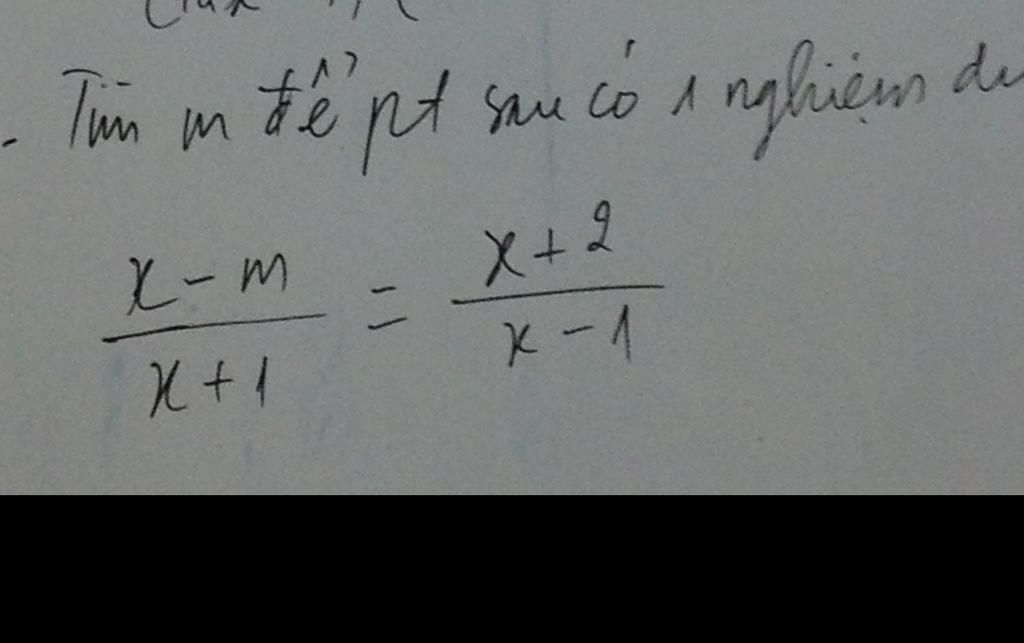 . Tìm m để pt sau có 1 nghiệm
x - m / x + 1 = x + 2 / x - 1